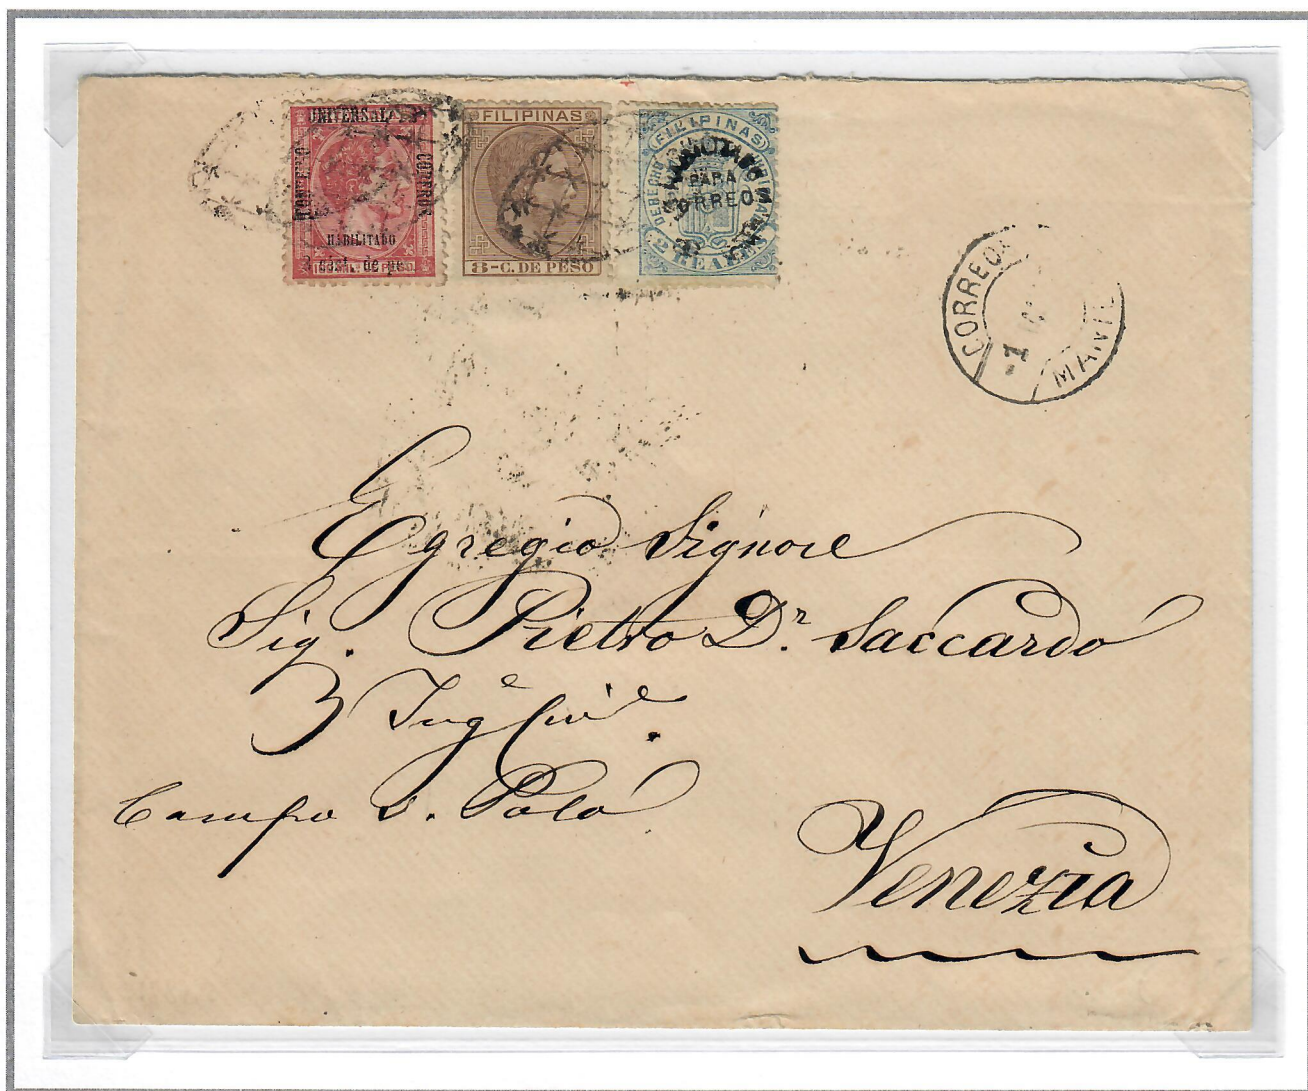 UNIVERSAL
CORREOS
HABILITADO
FILIPINAS
8-C. DE PESO
FILIPINAS
DERECHO
PARA
CORREOS
2 REALES
CORREOS
1
MANIL
Egregio Signore
Sig. Pietro Dr. Saccardo
Inge Cive.
Campo S. Polo
Venezia